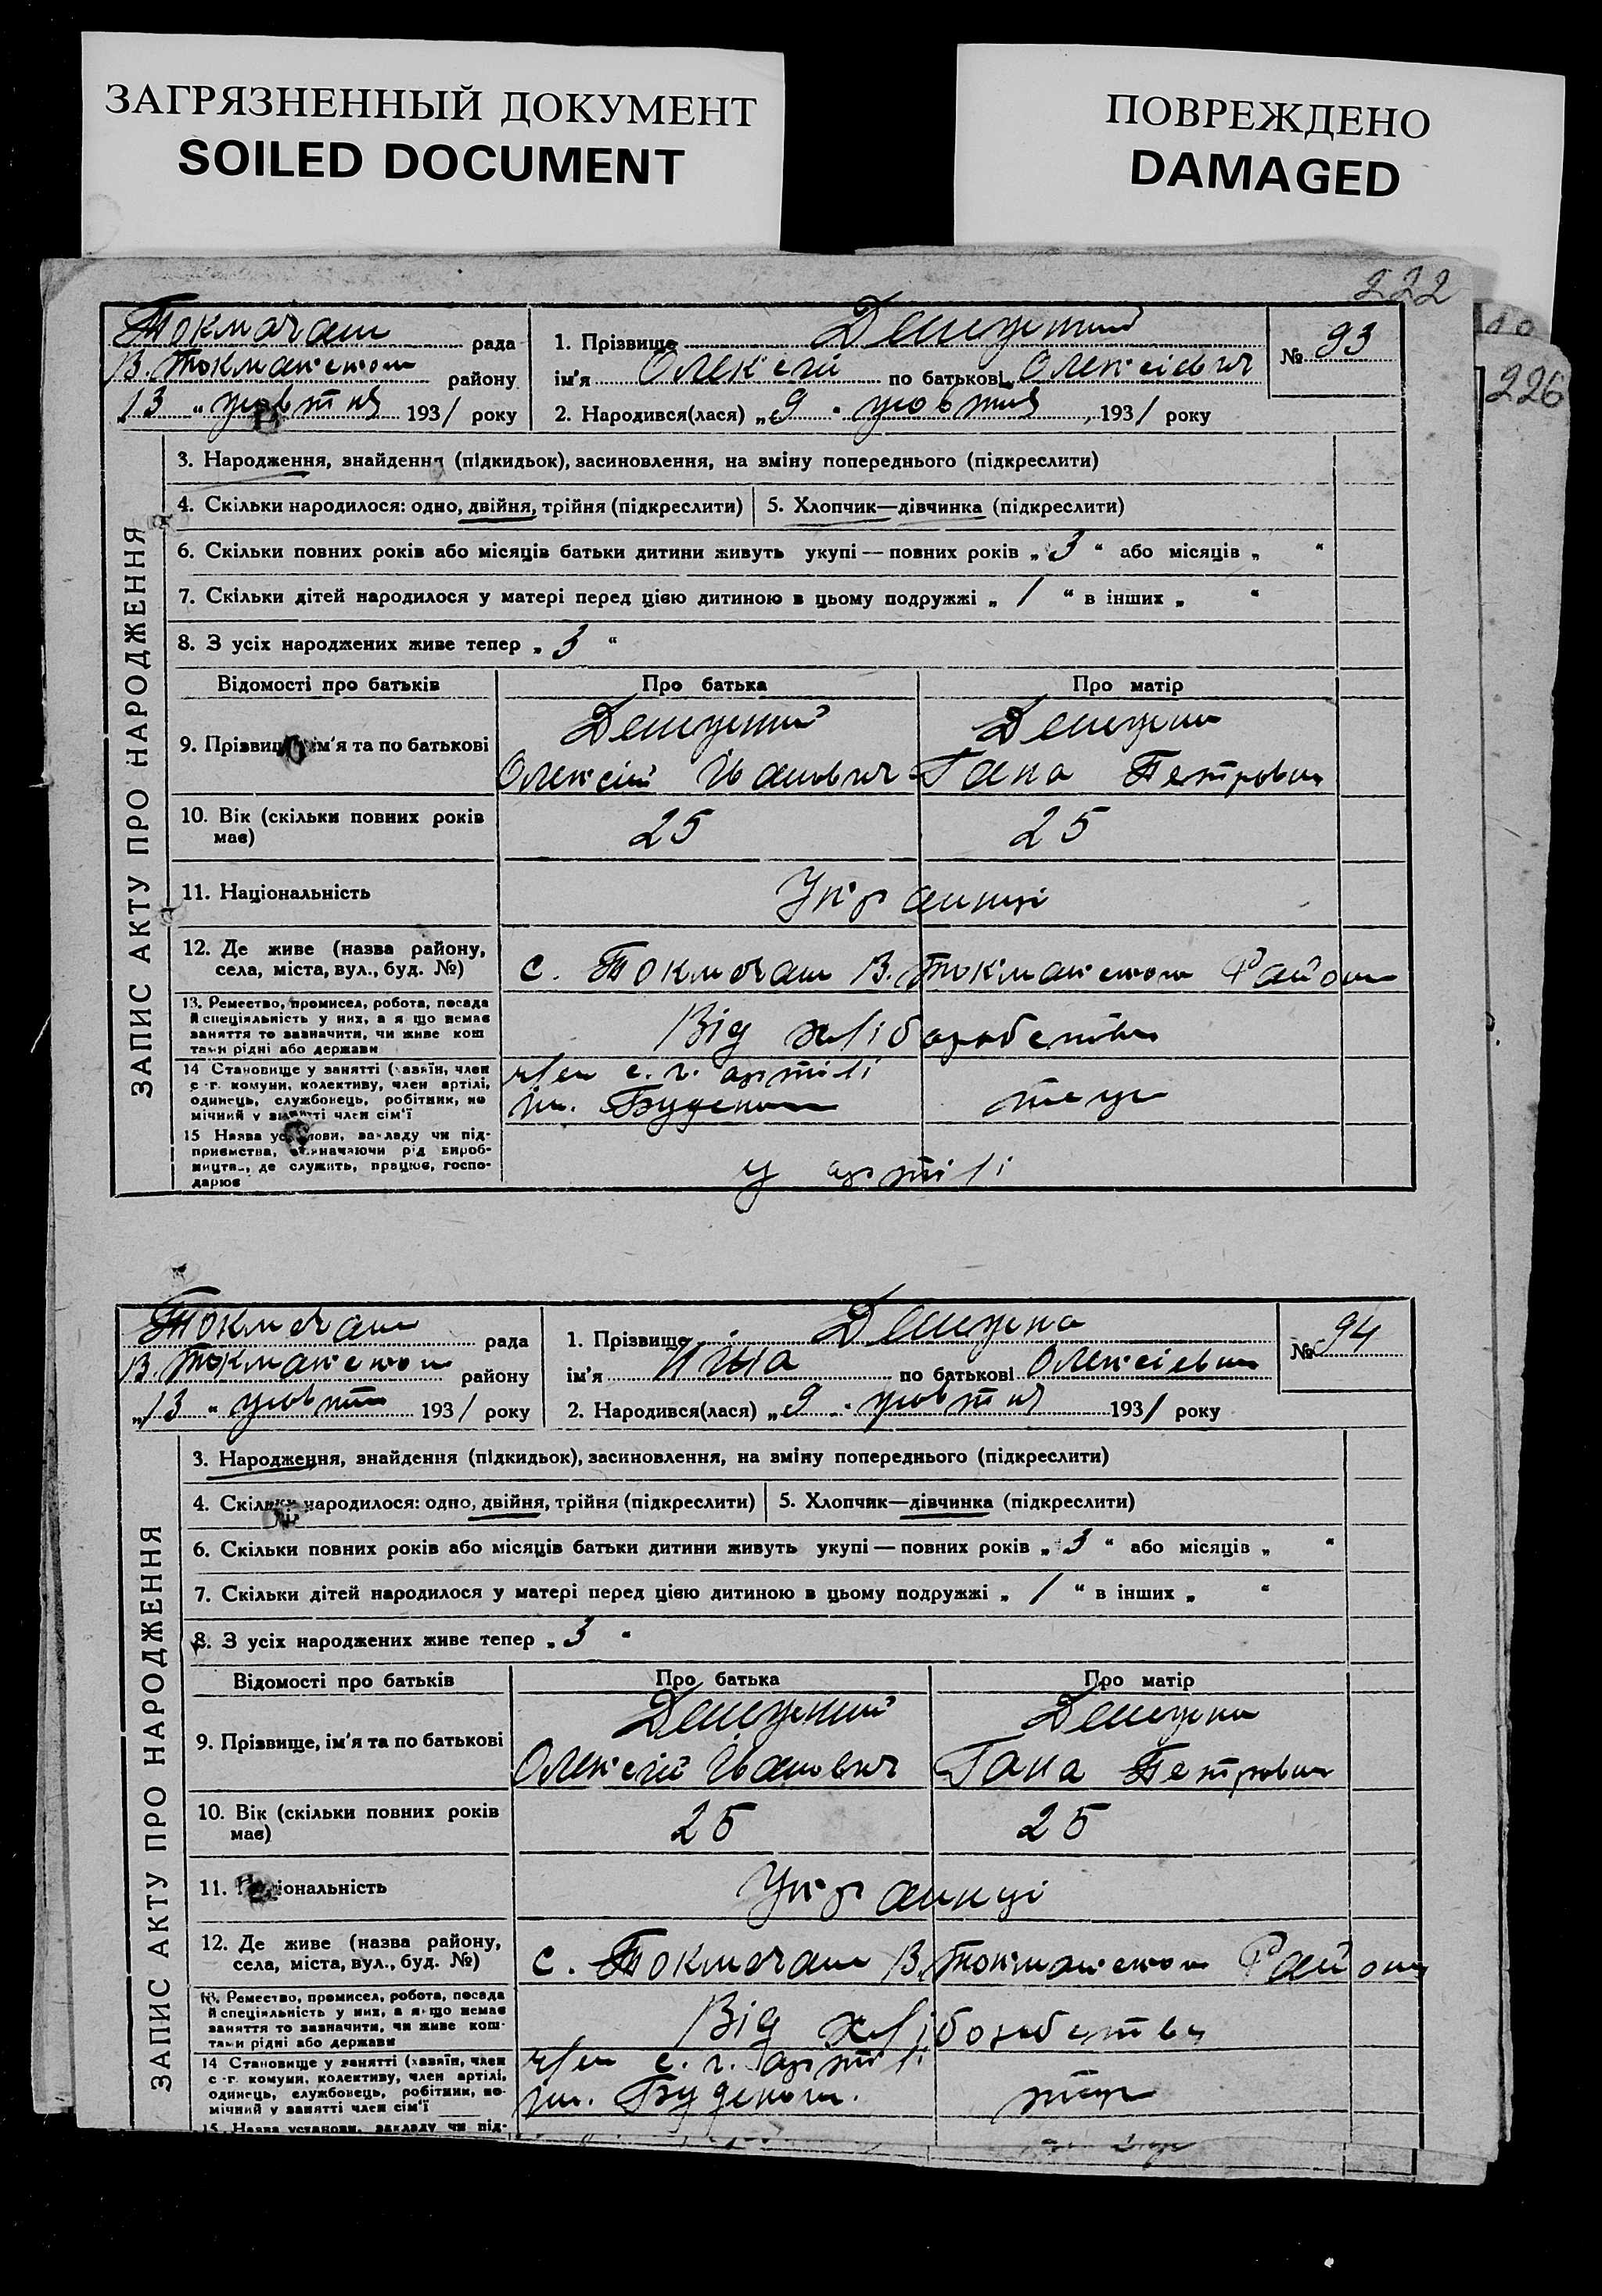 ЗАГРЯЗНЕННЫЙ ДОКУМЕНТ
SOILED DOCUMENT
ПОВРЕЖДЕНО
DAMAGED
222
226
ЗАПИС АКТУ ПРО НАРОДЖЕННЯ
рада
району
„13“ жовтня 1931 року
1. Прізвище
ім'я Олексій по батькові Олексієвич
№ 93
2. Народився(лася) „9“ жовтня, 1931 року
3. Народження, знайдення (підкидьок), засиновлення, на зміну попереднього (підкреслити)
4. Скільки народилося: одно, двійня, трійня (підкреслити)
5. Хлопчик—дівчинка (підкреслити)
6. Скільки повних років або місяців батьки дитини живуть укупі — повних років „3“ або місяців „ “
7. Скільки дітей народилося у матері перед цією дитиною в цьому подружжі „1“ в інших „ “
8. З усіх народжених живе тепер „3“
Відомості про батьків
Про батька
Про матір
9. Прізвище, ім'я та по батькові
Олексій Іванович
Гана Петровна
10. Вік (скільки повних років
має)
25
25
11. Національність
Українці
12. Де живе (назва району,
села, міста, вул., буд. №)
с. В. Район
13. Ремество, промисел, робота, посада
й спеціяльність у них, а якщо немає
заняття то зазначити, чи живе кош
тами рідні або держави
Від хліборобства
14 Становище у занятті (хазяїн, член
с.-г. комуни, колективу, член артілі,
одинець, службовець, робітник, по
мічний у занятті член сім'ї
член с. г. артілі
ім. Буденого
теж
15 Назва установи, закладу чи під-
приємства, зазначаючи рід вироб-
ництва, де служить, працює, госпо-
дарює
у артілі
ЗАПИС АКТУ ПРО НАРОДЖЕННЯ
рада
району
„13“ жовтня 1931 року
1. Прізвище
ім'я по батькові Олексіевна
№ 94
2. Народився(лася) „9“ жовтня 1931 року
3. Народження, знайдення (підкидьок), засиновлення, на зміну попереднього (підкреслити)
4. Скільки народилося: одно, двійня, трійня (підкреслити)
5. Хлопчик—дівчинка (підкреслити)
6. Скільки повних років або місяців батьки дитини живуть укупі — повних років „3“ або місяців „ “
7. Скільки дітей народилося у матері перед цією дитиною в цьому подружжі „1“ в інших „ “
8. З усіх народжених живе тепер „3“
Відомості про батьків
Про батька
Про матір
9. Прізвище, ім'я та по батькові
Олексій Іванович
Гана Петровна
10. Вік (скільки повних років
має)
25
25
11. Національність
Українці
12. Де живе (назва району,
села, міста, вул., буд. №)
с. В. Район
13. Ремество, промисел, робота, посада
й спеціяльність у них, а якщо немає
заняття то зазначити, чи живе кош-
тами рідні або держави
Від хліборобства
14 Становище у занятті (хазяїн, член
с.-г. комуни, колективу, член артілі,
одинець, службовець, робітник, по-
мічний у занятті член сім'ї
член с. г. артілі
ім. Буденого.
теж
15. Назва установи, закладу чи під-